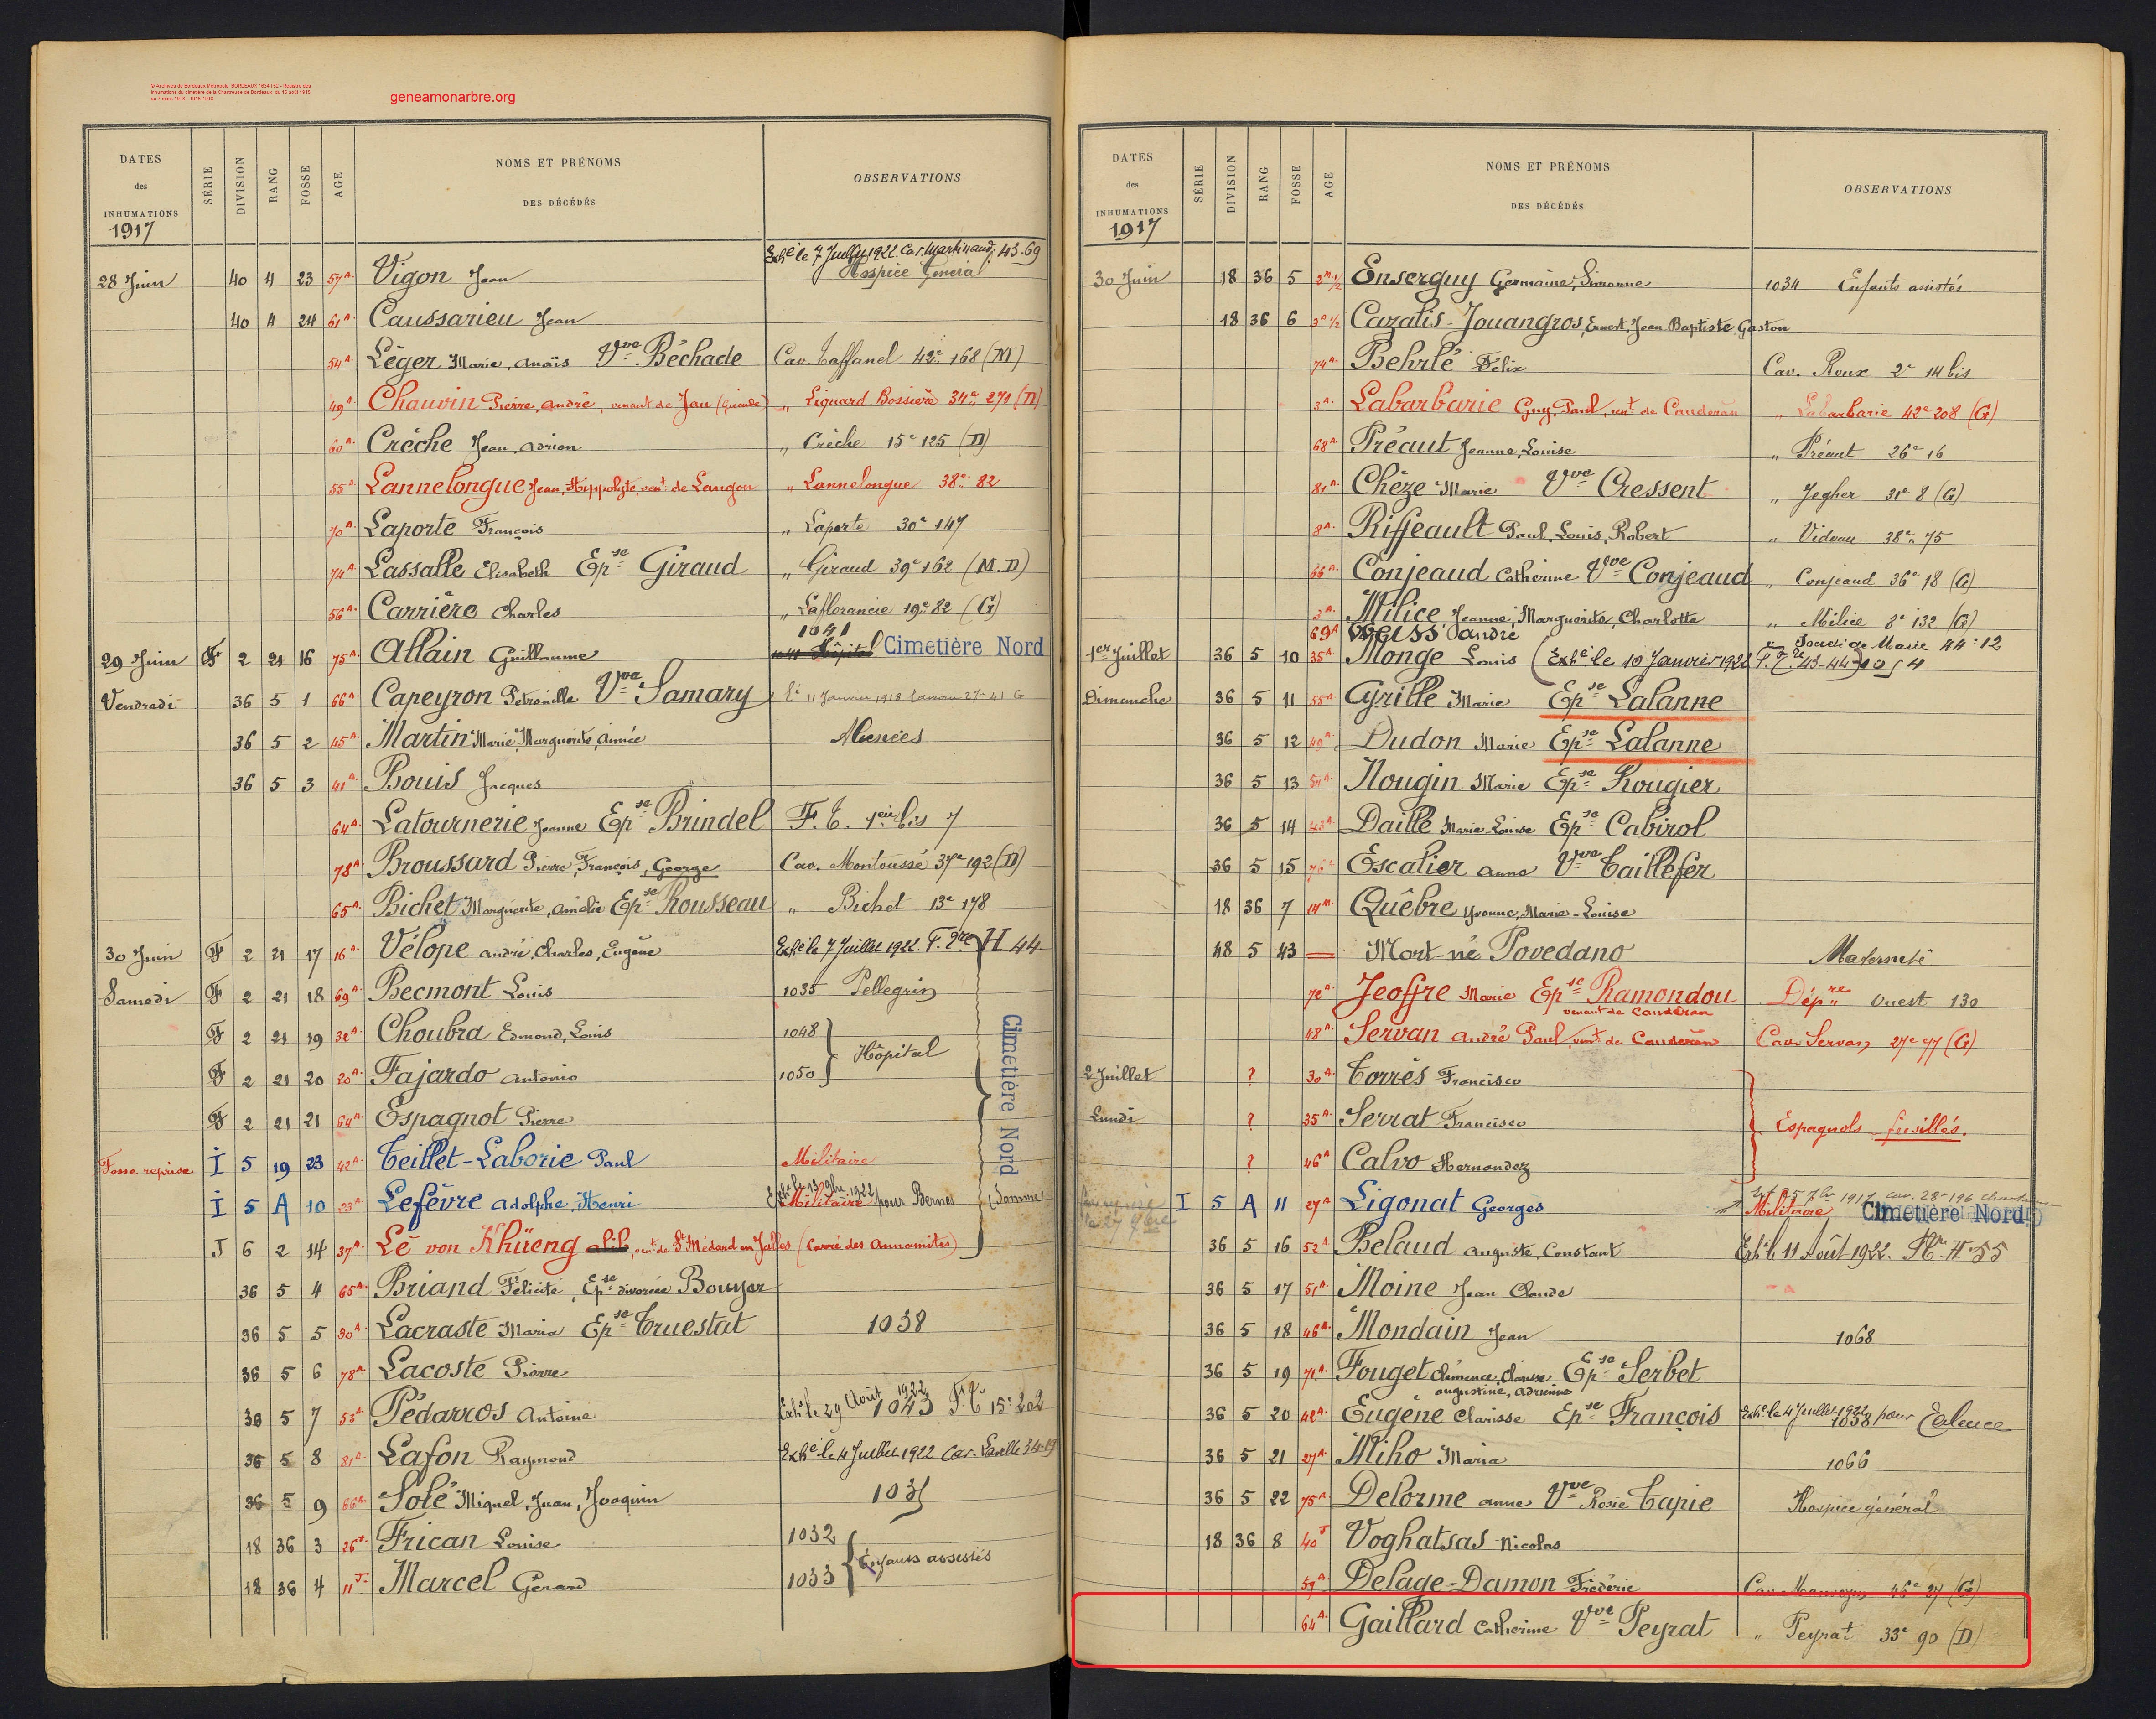 © Archives de Bordeaux Métropole, BORDEAUX 1634 I 52 - Registre des
inhumations du cimetière de la Chartreuse de Bordeaux, du 16 août 1915
au 7 mars 1918 - 1915-1918
geneamonarbre.org
DATES des INHUMATIONS SÉRIE DIVISION RANG FOSSE AGE NOMS ET PRÉNOMS DES DÉCÉDÉS OBSERVATIONS
1917
Exhé le 7 Juillet 1922 Cav. Martinaud, 43-69
28 Juin 40 4 23 57 A. Vigon Jean Hospice Général
40 4 24 61 A. Caussarieu Jean
54 A. Léger Marie, Anaïs Vve Béchade Cav. Taffanel 42e 168 (M)
49 A. Chauvin Pierre, André, venant de Jau (Gironde) " Liquard Bossière 34e 271 (D)
60 A. Crèche Jean, Adrien " Crèche 15e 125 (D)
55 A. Lannelongue Jean, Hippolyte, vent de Langon " Lannelongue 38e 82
70 A. Laporte François " Laporte 30e 147
74 A. Lassalle Elisabeth Epse Giraud " Giraud 39e 162 (M.D)
56 A. Carrière Charles " Laflorancie 19e 82 (G)
1041
29 Juin F 2 21 16 75 A. Allain Guillaume Hôpital Cimetière Nord
Vendredi 36 5 1 66 A. Capeyron Pétronille Vve Samary 11 Janvier 1918 27-41 G
36 5 2 45 A. Martin Marie, Marguerite, Aimée Menées
36 5 3 41 A. Bouis Jacques
64 A. Latournerie Jeanne Epse Brindel F. T. 1ère bis 7
78 A. Broussard Pierre, François, George Cav. Montoussé 37e 192 (D)
65 A. Bichet Marguerite, Amélie Epse Rousseau " Bichet 13e 178
30 Juin F 2 21 17 16 A. Vélope André, Charles, Eugène Exhé le 7 Juillet 1922. H 44
Samedi F 2 21 18 69 A. Becmont Louis 1035 Pellegrin
F 2 21 19 32 A. Choubra Edmond, Louis 1048
Hôpital
F 2 21 20 20 A. Fajardo Antonio 1050
Cimetière Nord
F 2 21 21 64 A. Espagnot Pierre
Fosse reprise I 5 19 23 42 A. Teillet-Laborie Paul Militaire
Exhé le 13 1922
I 5 A 10 23 A. Lefèvre Adolphe, Henri Militaire pour Bernes (Somme)
J 6 2 14 37 A. Lê von Khüeng, vent de St Médard en Jalles (Carré des Annamites)
36 5 4 65 A. Briand Félicité, Epse divorcée Bouyer
36 5 5 30 A. Lacraste Maria Epse Truestat 1038
36 5 6 78 A. Lacoste Pierre
36 5 7 53 A. Pédarros Antoine Exhé le 29 Août 1922 1043 F. T. 15e 202
36 5 8 81 A. Lafon Raymond Exhé le 4 Juillet 1922 Cav. 34-19
36 5 9 66 A. Solé Miguel, Juan, Joaquin 1035
18 36 3 26 J. Frican Louise 1032
Enfants assistés
18 36 4 11 J. Marcel Gérard 1033
DATES des INHUMATIONS SÉRIE DIVISION RANG FOSSE AGE NOMS ET PRÉNOMS DES DÉCÉDÉS OBSERVATIONS
1917
30 Juin 18 36 5 2 M. 1/2 Enserguy Germaine, Simonne 1034 Enfants assistés
18 36 6 1/2 Cazalis-Jouangros, Ernest, Jean Baptiste, Gaston
74 A. Behrlé Félix Cav. Roux 2e 14 bis
3 A. Labarbarie Guy, Paul, vent de Caudéran " Labarbarie 42e 208 (G)
68 A. Préaut Jeanne, Louise " Préaut 26e 16
81 A. Chèze Marie Vve Cressent " Jegher 31e 8 (G)
8 A. Riffeault Paul, Louis, Robert " Videau 38e 75
66 A. Conjeaud Catherine Vve Conjeaud " Conjeaud 36e 18 (G)
3 A. Milice Jeanne, Marguerite, Charlotte " Milice 8e 132 (G)
69 A Weiss André Société de Marie 44-12
1er Juillet 36 5 10 35 A. Monge Louis (Exhé le 10 Janvier 1922 43-44) 1054
Dimanche 36 5 11 55 A. Grille Marie Epse Lalanne
36 5 12 49 A. Dudon Marie Epse Lalanne
36 5 13 54 A. Nougin Marie Epse Rougier
36 5 14 43 A. Daille Marie-Louise Epse Cabirol
36 5 15 76 A. Escalier Anna Vve Taillefer
18 36 7 14 M. Quêbre Yvonne, Marie-Louise
48 5 43 — Mort-né Povedano Maternité
72 A. Jeoffre Marie Epse Ramondou Dépre Ouest 130
venant de Caudéran
48 A. Servan André Paul vent de Caudéran Cav. Servan 27e 97 (G)
2 Juillet ? 30 A. Torrès Francisco
Lundi ? 35 A. Serrat Francisco Espagnols fusillés.
? 46 A Calvo Hernandez
1917 cav. 28e 196 Chartreuse
I 5 A 11 27 A Ligonat Georges Militaire Cimetière Nord
36 5 16 52 A Belaud Auguste, Constant Exhé le 11 Août 1922. H-55
36 5 17 51 A. Moine Jean Claude
36 5 18 46 A. Mondain Jean 1068
36 5 19 71 A. Fouget Clémence, Clarisse Epse Serbet
Augustine, Adrienne
36 5 20 42 A. Eugène Clarisse Epse François Exhé le 4 Juillet 1922 1058 pour Talence
36 5 21 27 A. Miho Maria 1066
36 5 22 75 A Delorme Anne Vve Rosie Tapie Hospice général
18 36 8 40 J Voghatsas Nicolas
59 A. Delage-Damon Frédéric Cav. 46e 27 (G)
64 A. Gaillard Catherine Vve Peyrat " Peyrat 33e 90 (D)